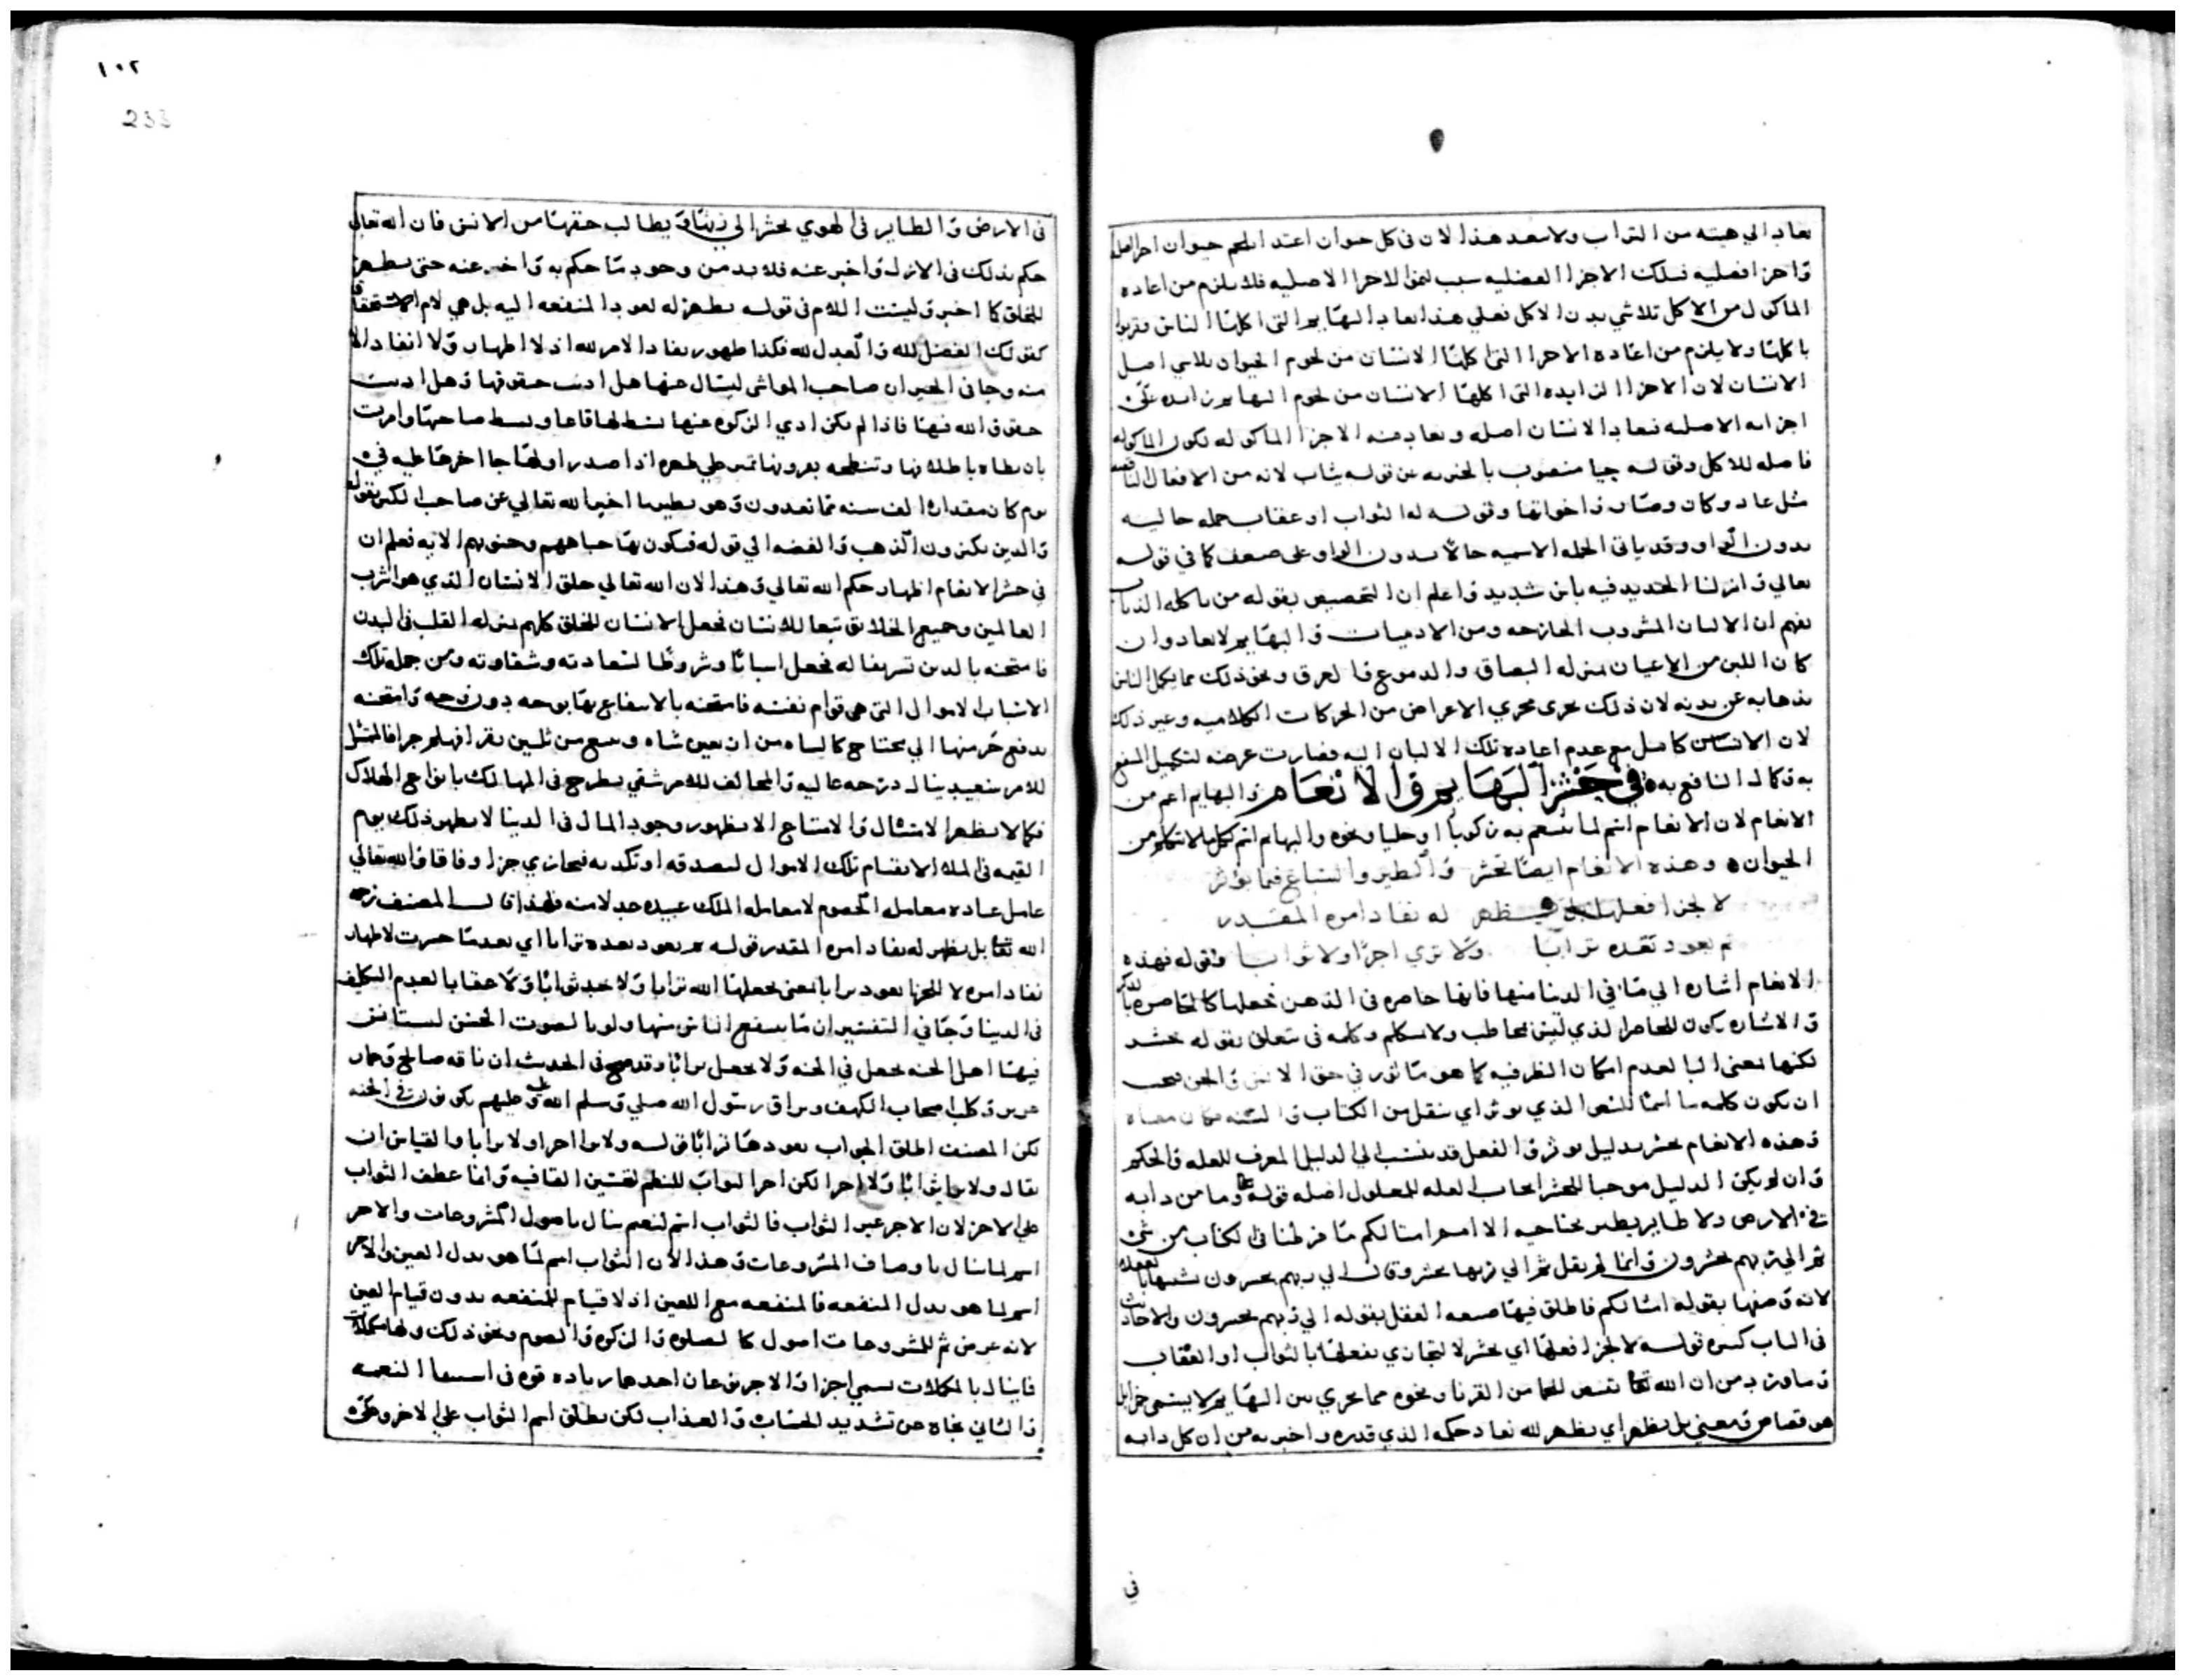 يعاد الي هيئته من التراب ولا يبعد هذا لان في كل حيوان اعتدا بلحم حيوان اجزا اصلية
واجزا فضليه فتلك الاجزا الفضليه سبب لنمو الاجزا الاصليه فلا يلزم من اعاده
الماكول من الاكل تلاشي بدن الاكل فعلي هذا يعاد البهايم التي اكلها الناس
باكلها ولا يلزم من اعاده الاجزا التي اكلها الانسان من لحوم الحيوان تلاشي اصل
الانسان لان الاجزا الزايده التي اكلها الانسان من لحوم البهايم زايده علي
اجزايه الاصليه فيعاد الانسان اصله ويعاد منه الاجزا الماكوله لكون الماكوله
فاصله للاكل وقوله حيا منصوب بالخبريه عن قوله يثاب لانه من الافعال الناقصه
مثل عاد وكان وصار واخواتها وقوله له الثواب او عقاب جمله حاليه
بدون الواو وقد ياتي الجمله الاسميه حالا بدون الواو علي ضعف كما في قوله
تعالي وانزلنا الحديد فيه باس شديد واعلم ان التخصيص بقوله من ياكله الذياب
يفهم ان الالبان المشروب الخارجه ومن الادميات والبهايم لا يعاد وان
كان اللبن من الاعيان بمنزله البصاق والدموع والعرق ونحو ذلك مما يكمل الناس
بذهابه عن بدنه لان ذلك يجري مجري الاعراض من الحركات الكلاميه وغير ذلك
لان الانسان كامل مع عدم اعاده تلك الالبان اليه فصارت عرضه لتكميل المنتفع
به وكمال النافع به في حشر البهايم والانعام والبهايم اعم من
الانعام لان الانعام اسم لما يتنعم به ركوبا او حليا ونحوه والبهايم اسم لكل ما لا يتكلم من
الحيوان وهذه الانعام ايضا تحشر والطير والسباع فيما يؤثر
لا لجزا فعلها بل يظهر له نفاد امره المقدر
ثم يعود بعده ترابا ولا تري اجرا ولا ثوابا وقوله فهذه
الانعام اشاره الي ما في الدنيا منها فانها حاضره في الذهن فجعلها كالحاضره بالذكر
والاشاره يكون للحاضر الذي ليس بمخاطب ولا متكلم وكلمه في متعلق بقوله تحشر
لكنها بمعني البا لعدم امكان الظرفيه كما هو ماثور في حق الانس والجن فيجب
ان يكون كلمه ما اسما للشي الذي يوثر اي ينقل من الكتاب والسنه فكان معناه
وهذه الانعام تحشر بدليل يوثر والفعل قد ينسب الي الدليل المعرف للعله والحكم
وان لم يكن الدليل موجبا للحشر ايجاب العله للمعلول اصله قوله تعالي وما من دابه
في الارض ولا طاير يطير بجناحيه الا امم امثالكم ما فرطنا في الكتاب من شي
ثم الي ربهم يحشرون وانما لم يقل ثم الي ربها يحشر وقال الي ربهم يحشرون تشبيها بالعقلا
لانه وصفها بقوله امثالكم فاطلق فيها صيغه العقل بقوله الي ربهم يحشرون والاحاديث
في الباب كثيره قوله لا لجزا فعلها اي تحشر لا لتجازي بفعلها بالثواب او العقاب
وما ورد من ان الله تعالي يقتص للجما من القرنا ونحوه مما يجري بين البهايم لا يسمي جزا بل
هو قصاص ومعني بل يظهر اي يظهر لله نفاد حكمه الذي قدره واخبر به من ان كل دابه
في
١٠٢
233
في الارض والطاير في الهوي يحشر الي ربها ويطالب حقها من الانس فان الله تعالي
حكم بذلك في الازل واخبر عنه فلا بد من وجود ما حكم به واخبر عنه حتي يظهر
للخلق كما اخبر وليست اللام في قوله يظهر له لعود المنفعه اليه بل هي لام الاستحقاق
كقولك الفضل لله والعدل لله فكذا ظهور نفاد الامر لله اذ لا اظهار ولا انفاد الا
منه وجا في الخبر ان صاحب المواشي ليسال عنها هل اديت حقوقها وهل اديت
حقوق الله فيها فاذا لم يكن ادي الزكوه عنها بسط لها قاعا وبسط صاحبها وامرت
بان تطاه باظلافها وتنطحه بقرونها تمر علي ظهره اذا صدر اولها جا اخرها عليه في
يوم كان مقداره الف سنه مما تعدون وهو نظير ما اخبر الله تعالي عن صاحب الكنز بقوله
والذين يكنزون الذهب والفضه الي قوله فتكوي بها جباههم وجنوبهم الايه فعلم ان
في حشر الانعام اظهار حكم الله تعالي وهذا لان الله تعالي خلق الانسان الذي هو اشرف
العالمين وجميع الخلايق تبعا للانسان فجعل الانسان للخلق كلهم بمنزله القلب في البدن
فامتحنه بالدين تشريفا له فجعل اسبابا وشروطا لسعادته وشقاوته ومن جمله تلك
الاسباب الاموال التي هي قوام نفسه فامتحنه بالانتفاع بها بوجه دون وجه وامتحنه
بدفع جز منها الي محتاج كالشاه من اربعين شاه وتبيع من ثلثين بقرا فهلم جرا فالممتثل
للامر سعيد ينال درجه عاليه والمخالف للامر شقي يطرح في المهالك بانواع الهلاك
فكما لا يظهر الامتثال والامتناع الا بظهور وجود المال في الدنيا لا يظهر ذلك يوم
القيمه في الملا الا بقيام تلك الاموال لتصدقه او تكذبه فيجازي جزا وفاقا والله تعالي
عامل عباده معامله الخصوم لا معامله الملك عبيده عدلا منه فلهذا قال المصنف رحمه
الله تعالي بل يظهر له نفاد امره المقدر قوله ثم يعود بعده ترابا اي بعد ما حشرت لاظهار
نفاد امره لا للجزا يعود ترابا يعني يجعلها الله ترابا ولا يجد ثوابا ولا عقابا لعدم التكليف
في الدنيا وجا في التفسير ان ما ينتفع الناس منها ولو بالصوت الحسن ليستانس
فيها اهل الجنه يجعل في الجنه ولا يجعل ترابا وقد صح في الحديث ان ناقه صالح وحمار
عزير وكلب اصحاب الكهف وبراق رسول الله صلي وسلم الله عليه وعليهم يكونون في الجنه
لكن المصنف اطلق الجواب بعودها ترابا قوله ولا يري اجرا ولا ثوابا والقياس ان
يقال ولا يري ثوابا ولا اجرا لكن اخر الثواب للنظم لتحسين القافيه وانما عطف الثواب
علي الاجر لان الاجر غير الثواب فالثواب اسم لنعم ينال باصول المشروعات والاجر
اسم لما ينال باوصاف المشروعات وهذا لان الثواب اسم لما هو بدل العين والاجر
اسم لما هو بدل المنفعه فالمنفعه مع العين اذ لا قيام للمنفعه بدون قيام العين
لانه عرض ثم للمشروعات اصول كالصلوه والزكوه والصوم ونحو ذلك ولها مكملات
فاينال بالمكملات يسمي اجرا والاجر نوعان احدهما زياده قوه في استيفا النعمه
والثاني نجاه عن تشديد الحساب والعذاب لكن يطلق اسم الثواب علي الاخر وعلي